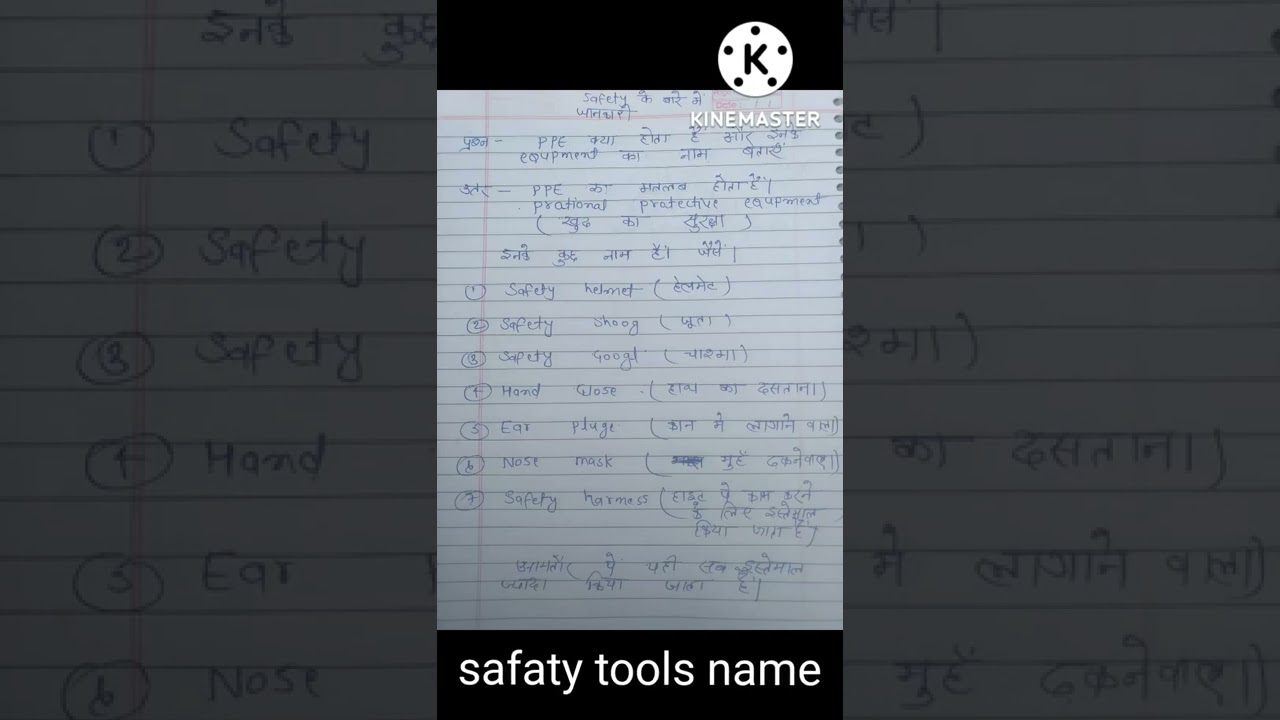 KINEMASTER
Safety के बारे में
जानकारी
प्रश्न - PPE क्या होता है और इनके
equpment का नाम बताएँ
उतर - PPE का मतलब होता है।
prational protective equpment
( खुद का सुरक्षा )
इनके कुछ नाम है। जैसे।
① Safety helmet (हेलमेट)
② Safety shoog (जूता)
③ Safety Googl (चाश्मा)
④ Hand Glose . (हाथ का दस्ताना)
⑤ Ear pluge (कान मे लागाने वाला)
⑥ Nose mask ( मुहँ ढकनेवाला)
⑦ Safety harness (हाइट पे काम करने
के लिए इस्तेमाल
किया जाता है)
आमतौर पे यही सब इस्तेमाल
ज्यादा किया जाता है।
safaty tools name